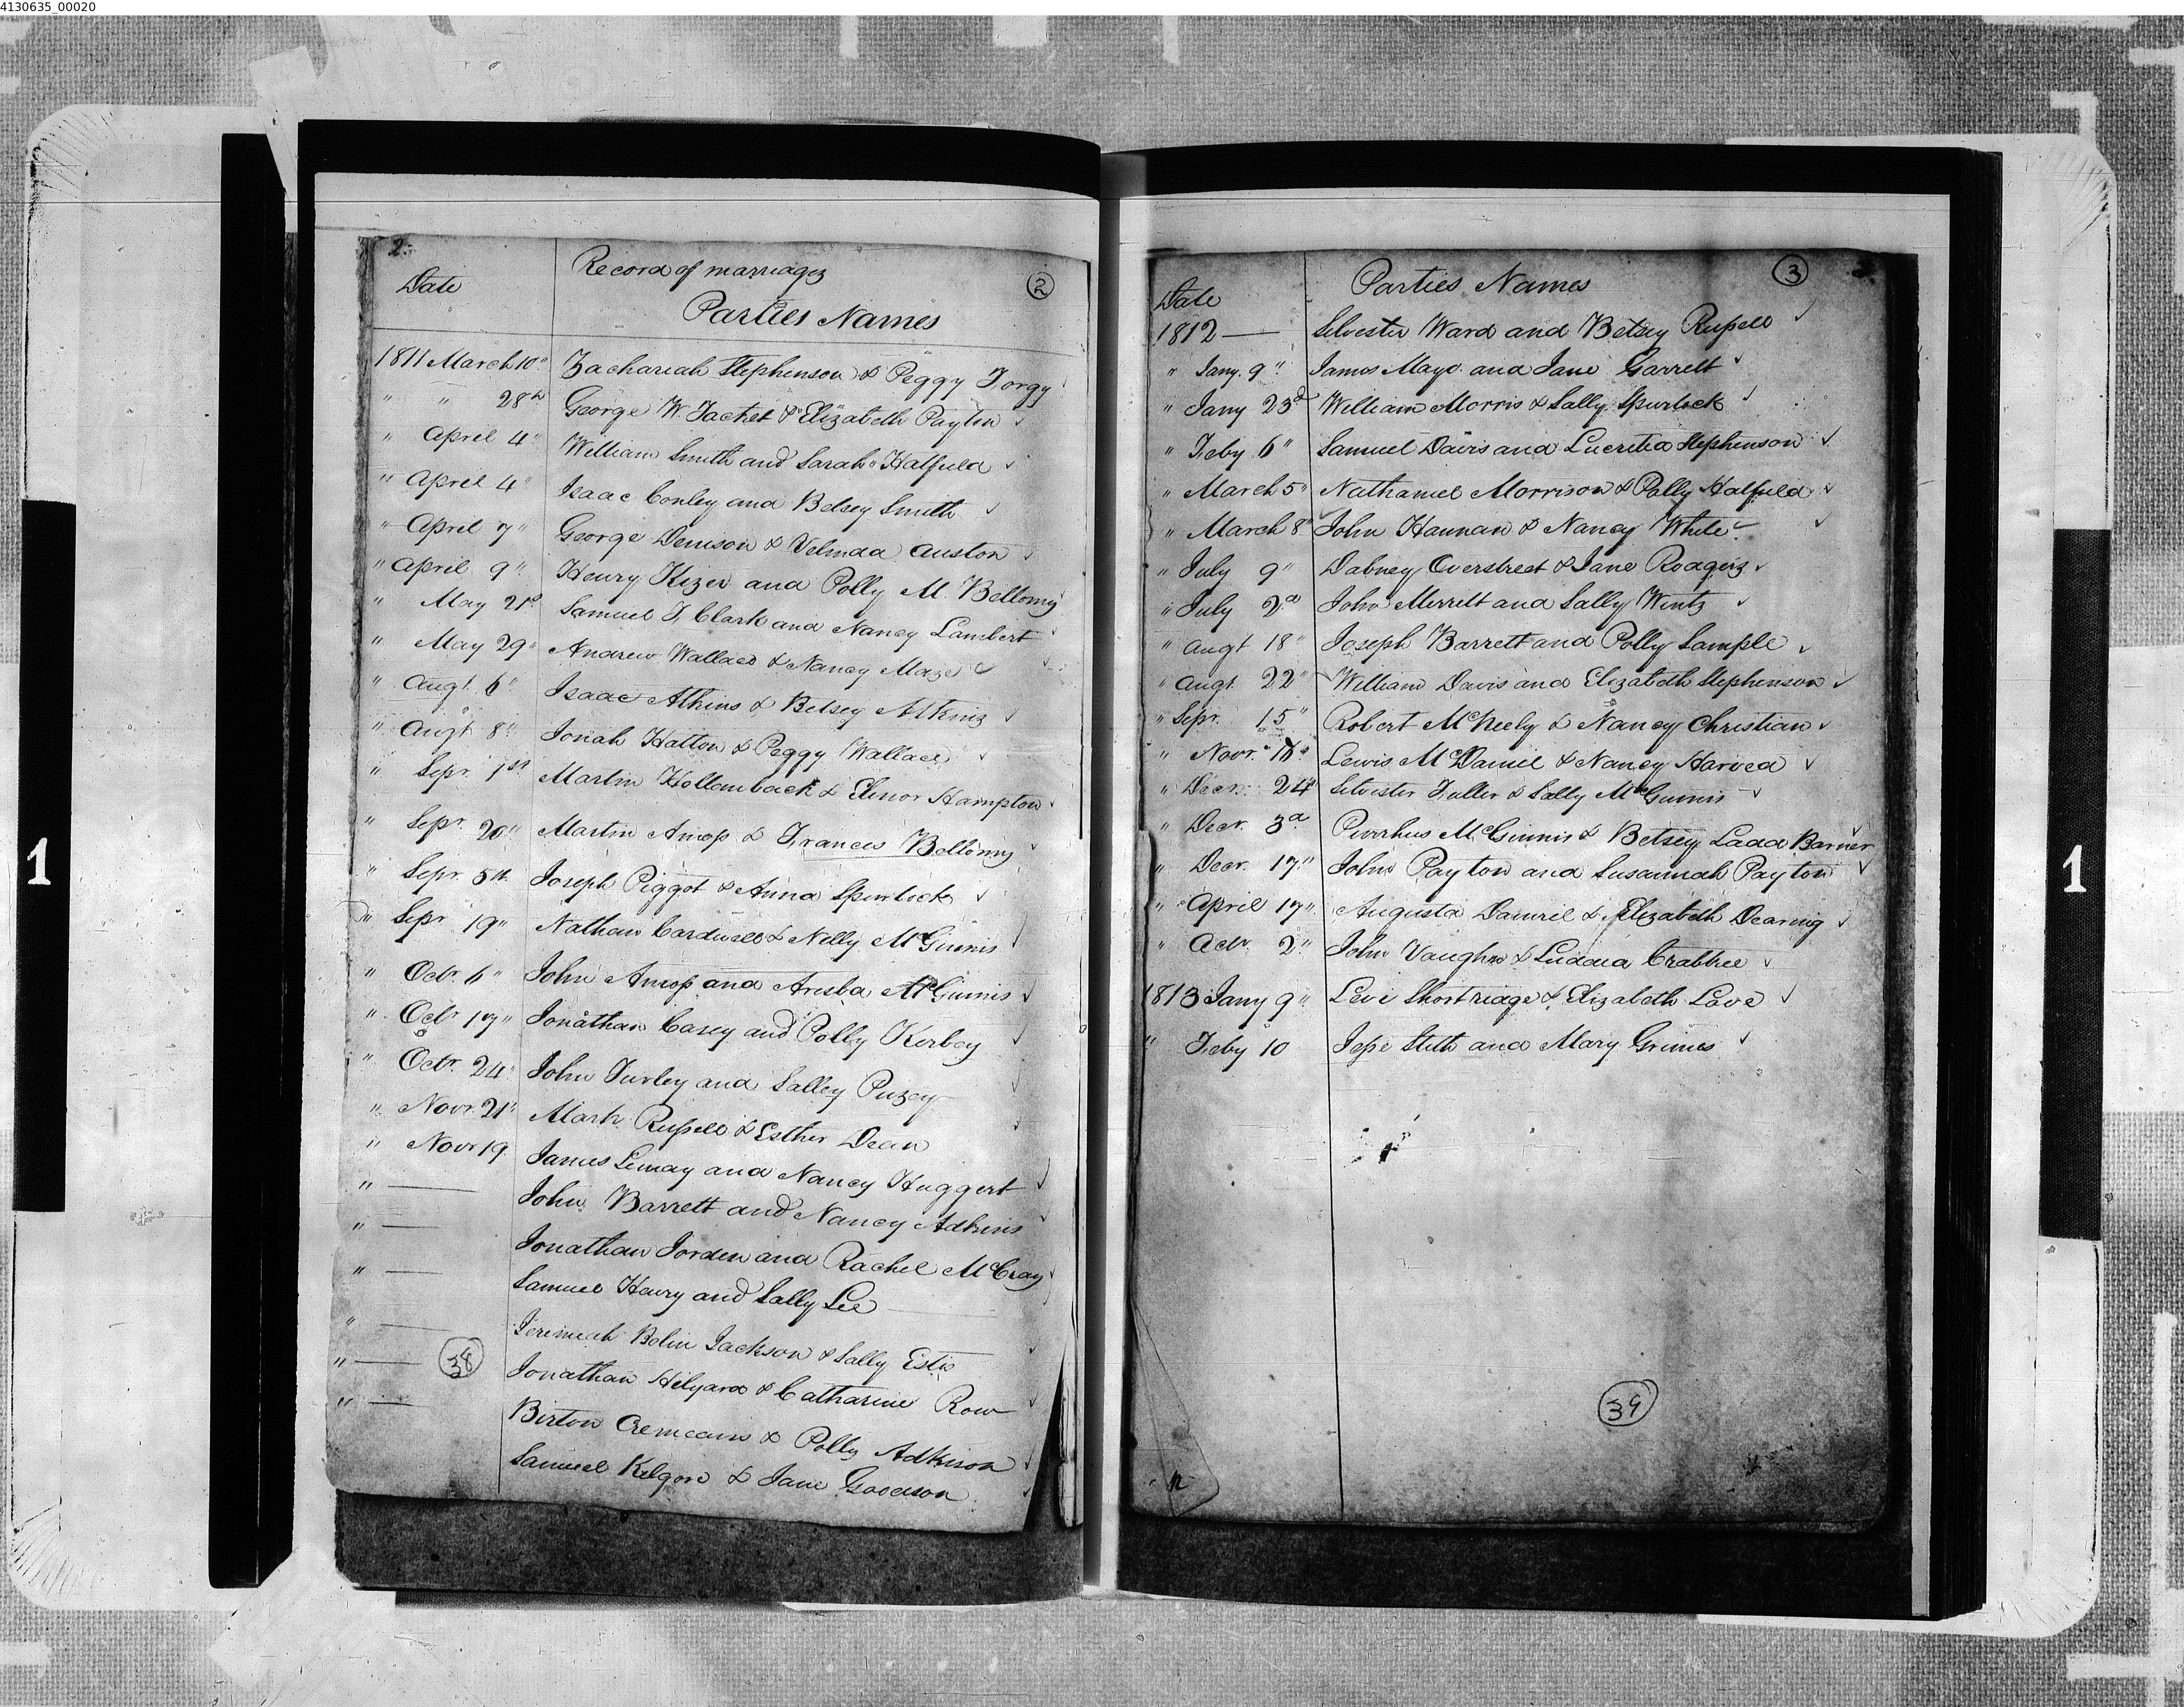 4130635_00020
2
Record of marriages
2
Date
Parties Names
1811 March 10" Zachariah Stephenson & Peggy Torgy
" " 28th George W. Tacket & Elizabeth Payton
" April 4" William Smith and Sarah Hatfield
" April 4" Isaac Conley and Betsey Smith
" April 7" George Denison & Velinda Auston
" April 9" Henry Kizer and Polly M. Bellomy
" May 21st Samuel T. Clark and Nancy Lambert
" May 29" Andrew Wallace & Nancy Maze
" Augt. 6" Isaac Atkins & Betsey Atkins
" Augt 8" Jonah Hatton & Peggy Wallace
" Sepr. 1st Martin Hollemback & Elenor Hampton
" Sepr. 20" Martin Amoss & Frances Bellomy
" Sepr. 5th Joseph Piggot & Anna Spurlock
" Sepr 19" Nathan Cardwell & Nelly McGinnis
" Octr. 6" John Amoss and Aresba McGinnis
" Octr 17" Jonathan Casey and Polly Kerbey
" Octr. 24" John Turley and Salley Puzey
" Novr. 21" Mark Russell & Esther Dean
" Novr 19. James Lemay and Nancy Huggert
" John Barrett and Nancy Adkins
" Jonathan Jorden and Rachel McCray
" Samuel Henry and Sally Lee
" Jeremiah Bolin Jackson & Sally Estis
" 38 Jonathan Hilyard & Catharine Row
" Birton Cremeans & Polly Adkison
Samuel Kilgore & Jane Gooderson
Parties Names 3
Date
1812 Silvester Ward and Betsey Russell
" Jany. 9" James Mayo and Jane Garrett
" Jany 23d William Morris & Sally Spurlock
" Feby 6" Samuel Davis and Lucretia Stephenson
" March 5" Nathaniel Morrison & Polly Hatfield
" March 8" John Hannan & Nancy White
" July 9" Dabney Overstreet & Jane Rodgers
" July 2d John Merrett and Sally Wentz
" Augt 18" Joseph Barrett and Polly Sample
" Augt. 22" William Davis and Elizabeth Stephenson
" Sepr. 15" Robert McNeely & Nancy Christian
" Novr. Lewis McDaniel & Nancy Harved
" Decr. 24" Silvester Fuller & Sally McGinnis
" Decr. 3d Pirrhus McGinnis & Betsey Ladd Barner
" Decr. 17" John Payton and Susannah Payton
" April 17" Augusta Dannil & Elizabeth Dearing
" Octr. 2" John Vaughn & Crabtree
1813 Jany 9" Levi Shortridge & Elizabeth Love
" Feby 10 Jesse Stith and Mary Grimes
39
1
1